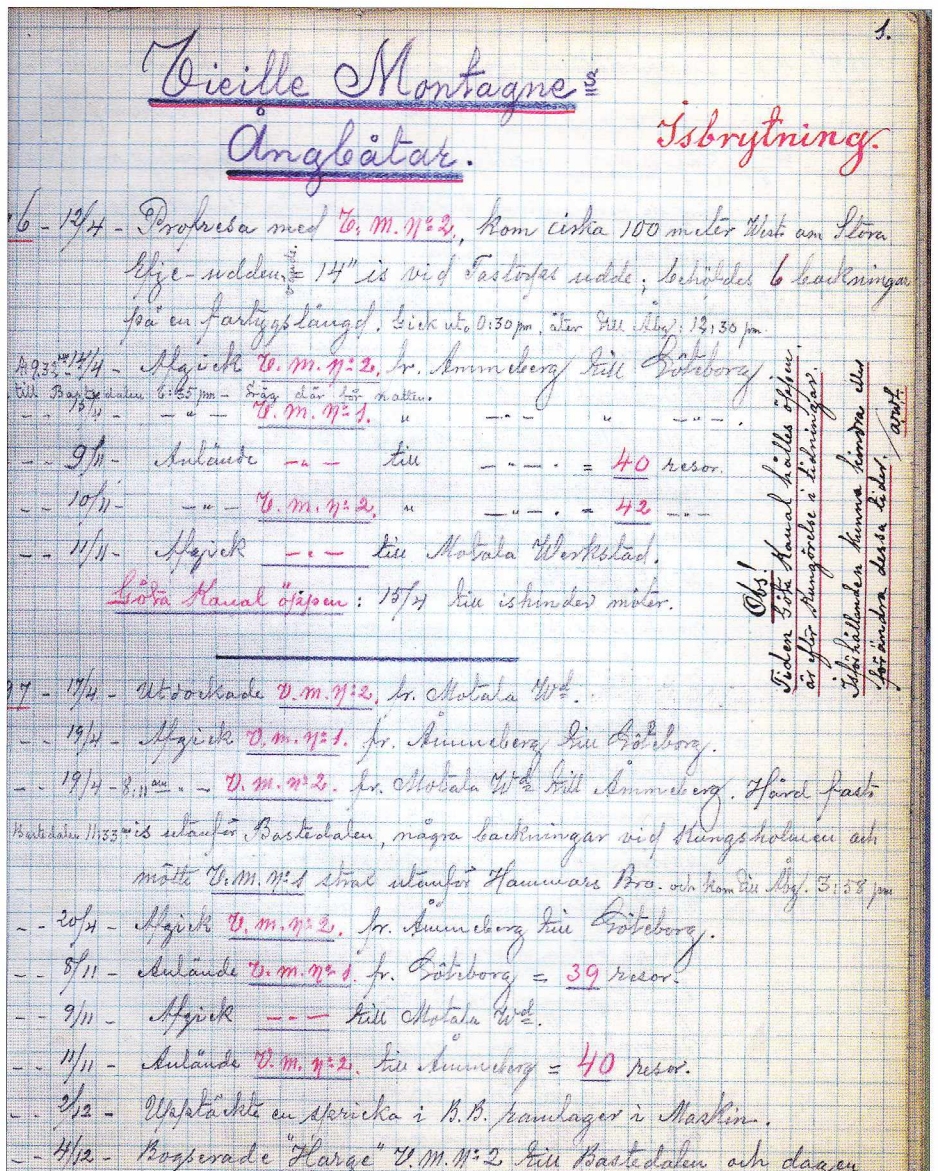 1.
Vieille Montagnes
Ångbåtar.
Isbrytning.
6 - 12/4 - Profresa med V. M. No 2., kom cirka 100 meter West om Stora
Elje-udden, = 14" is vid Tastorfs udde; behöfdes 6 backningar
på en fartygslängd. Gick ut. 0:30 pm, åter till Åbg: 12:30 pm.
14/4 - Afgick V. M. No 2. fr. Åmmeberg till Göteborg
till Bastedalen 6:55 pm - låg där för natten.
15/4 - - " - V. M. No 1. " - " - " - " - .
- - 9/11 - Anlände - " - till - " - . = 40 resor.
- - 10/11 - - " - V. M. No 2. " - " - . = 42 - " -
- - 11/11 - Afgick - " - till Motala Werkstad.
Göta Kanal öppen: 15/4 till ishinder möter.
Obs!
Tiden Göta Kanal hålles öppen
är efter Kungörelse i tidningar.
Isförhållanden kunna hindra eller
förändra dessa tider.
97 - 17/4 - Utdockade V. M. No 2. fr. Motala Wd.
- - 19/4 - Afgick V. M. No 1. fr. Åmmeberg till Göteborg.
- - 19/4 - 8:11 am - " - V. M. No 2. fr. Motala Wd till Åmmeberg. Hård fast
Bastedalen 11:33 am is utanför Bastedalen, några backningar vid Kungsholmen och
mötte V. M. No 1 strax utanför Hammars Bro. och kom till Åbg. 3:58 pm
- - 20/4 - Afgick V. M. No 2. fr. Åmmeberg till Göteborg.
- - 8/11 - Anlände V. M. No 1. fr. Göteborg = 39 resor.
- - 9/11 - Afgick - " - till Motala Wd.
- - 11/11 - Anlände V. M. No 2. till Åmmeberg = 40 resor.
- - 2/12 - Upptäckte en spricka i B.B. ramlager i Maskin.
- - 4/12 - Bogserade "Harge" V. M. No 2 till Bastedalen och dagen